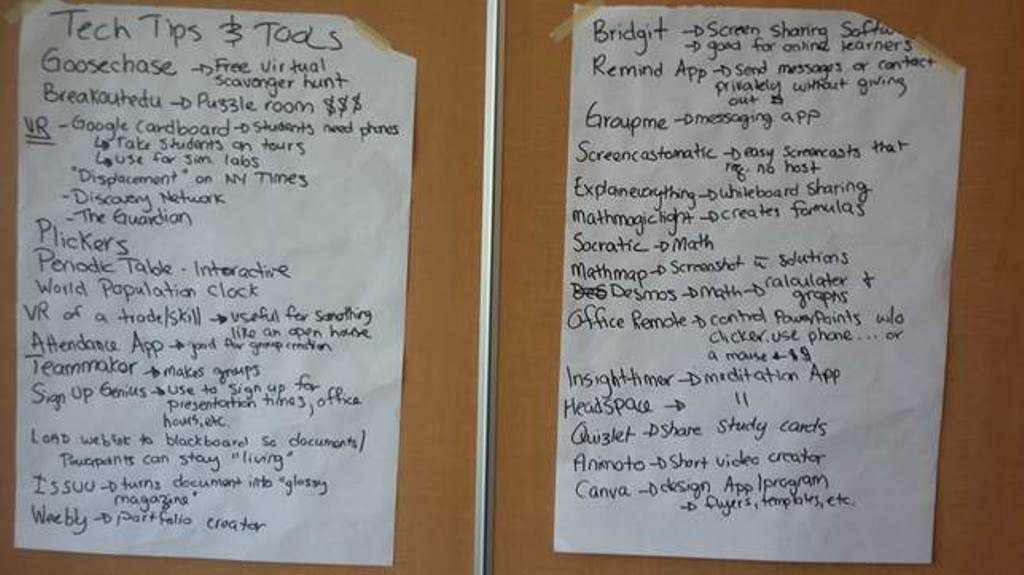 Tech Tips & Tools
Goosechase → Free virtual
scavanger hunt
Breakoutedu → Puzzle room $$$
VR - Google Cardboard → Students need phones
↳ Take students on tours
↳ use for sim labs
"Displacement" on NY Times
- Discovery Network
- The Guardian
Plickers
Periodic Table - Interactive
World Population Clock
VR of a trade/skill → useful for something
like an open house
Attendance App → good for group creation
Teammakor → makes groups
Sign Up Genius → use to sign up for
presentation times, office
hours, etc.
Load weblink to blackboard so documents/
Powerpoints can stay "living"
ISSUU → turns document into "glossy
magazine"
Weebly → portfolio creator
Bridgit → Screen sharing
→ good for online learners
Remind App → Send messages or contact
privately without giving
out #
Groupme → messaging app
Screencastomatic → easy screencasts that
req. no host
Explaneverything → whiteboard sharing
mathmagiclight → creates formulas
Socratic → Math
Mathmap → Screenshot = solutions
Desmos → math → calculater +
graphs
Office Remote → control PowerPoints w/o
clicker. use phone... or
a mouse ← $9
Insight timer → meditation App
Headspace → "
Quizlet → Share study cards
Animoto → Short video creator
Canva → design App/program
→ flyers, templates, etc.